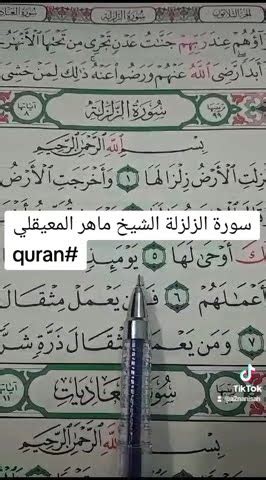 الجزء الثلاثون
سورة الزلزلة
جزاؤهم عند ربهم جنت عدن تجري من تحتها الأنهر
أبدا رضي الله عنهم ورضوا عنه ذلك لمن خشي
آياتها ٨
سورة الزلزلة
ترتيبها ٩٩
بسم الله الرحمن الرحيم
زلزلت الأرض زلزالها ١ وأخرجت الأرض
سورة الزلزلة الشيخ ماهر المعيقلي
#quran
أوحى لها ٥ يومئذ
أعملهم ٦ فمن يعمل مثقال
٧ ومن يعمل مثقال ذرة
آياتها ١١
سورة العاديات
بسم الله الرحمن الرحيم
TikTok